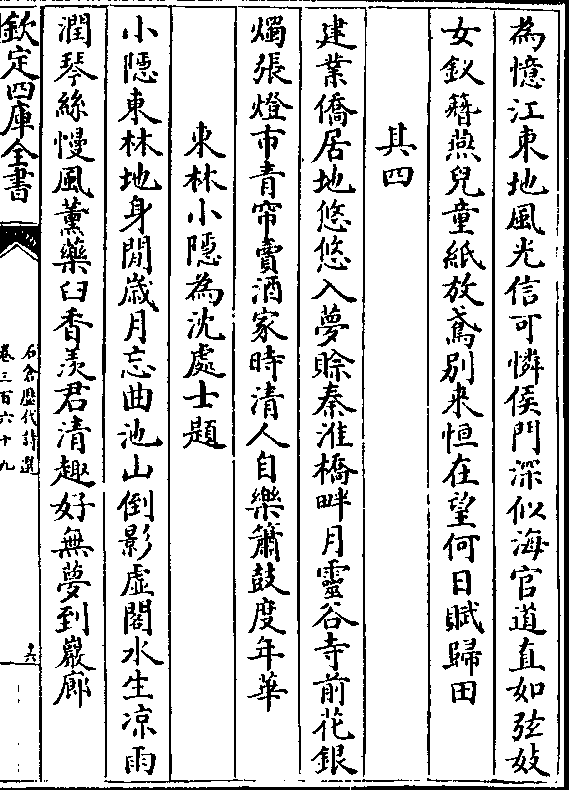 為憶江東地風光信可憐侯門深似海官道直如弦妓
女釵簪燕兒童紙放鳶別来恒在望何日賦歸田
其四
建業僑居地悠悠入夢賒秦淮橋畔月靈谷寺前花銀
燭張燈市青帘賣酒家時清人自樂簫鼓度年華
東林小隠為沈處士題
小隠東林地身閒歳月忘曲池山倒影虛閣水生凉雨
潤琴絲慢風薰藥臼香羨君清趣好無夢到巖廊
欽定四庫全書
石倉歴代詩選
卷三百六十九